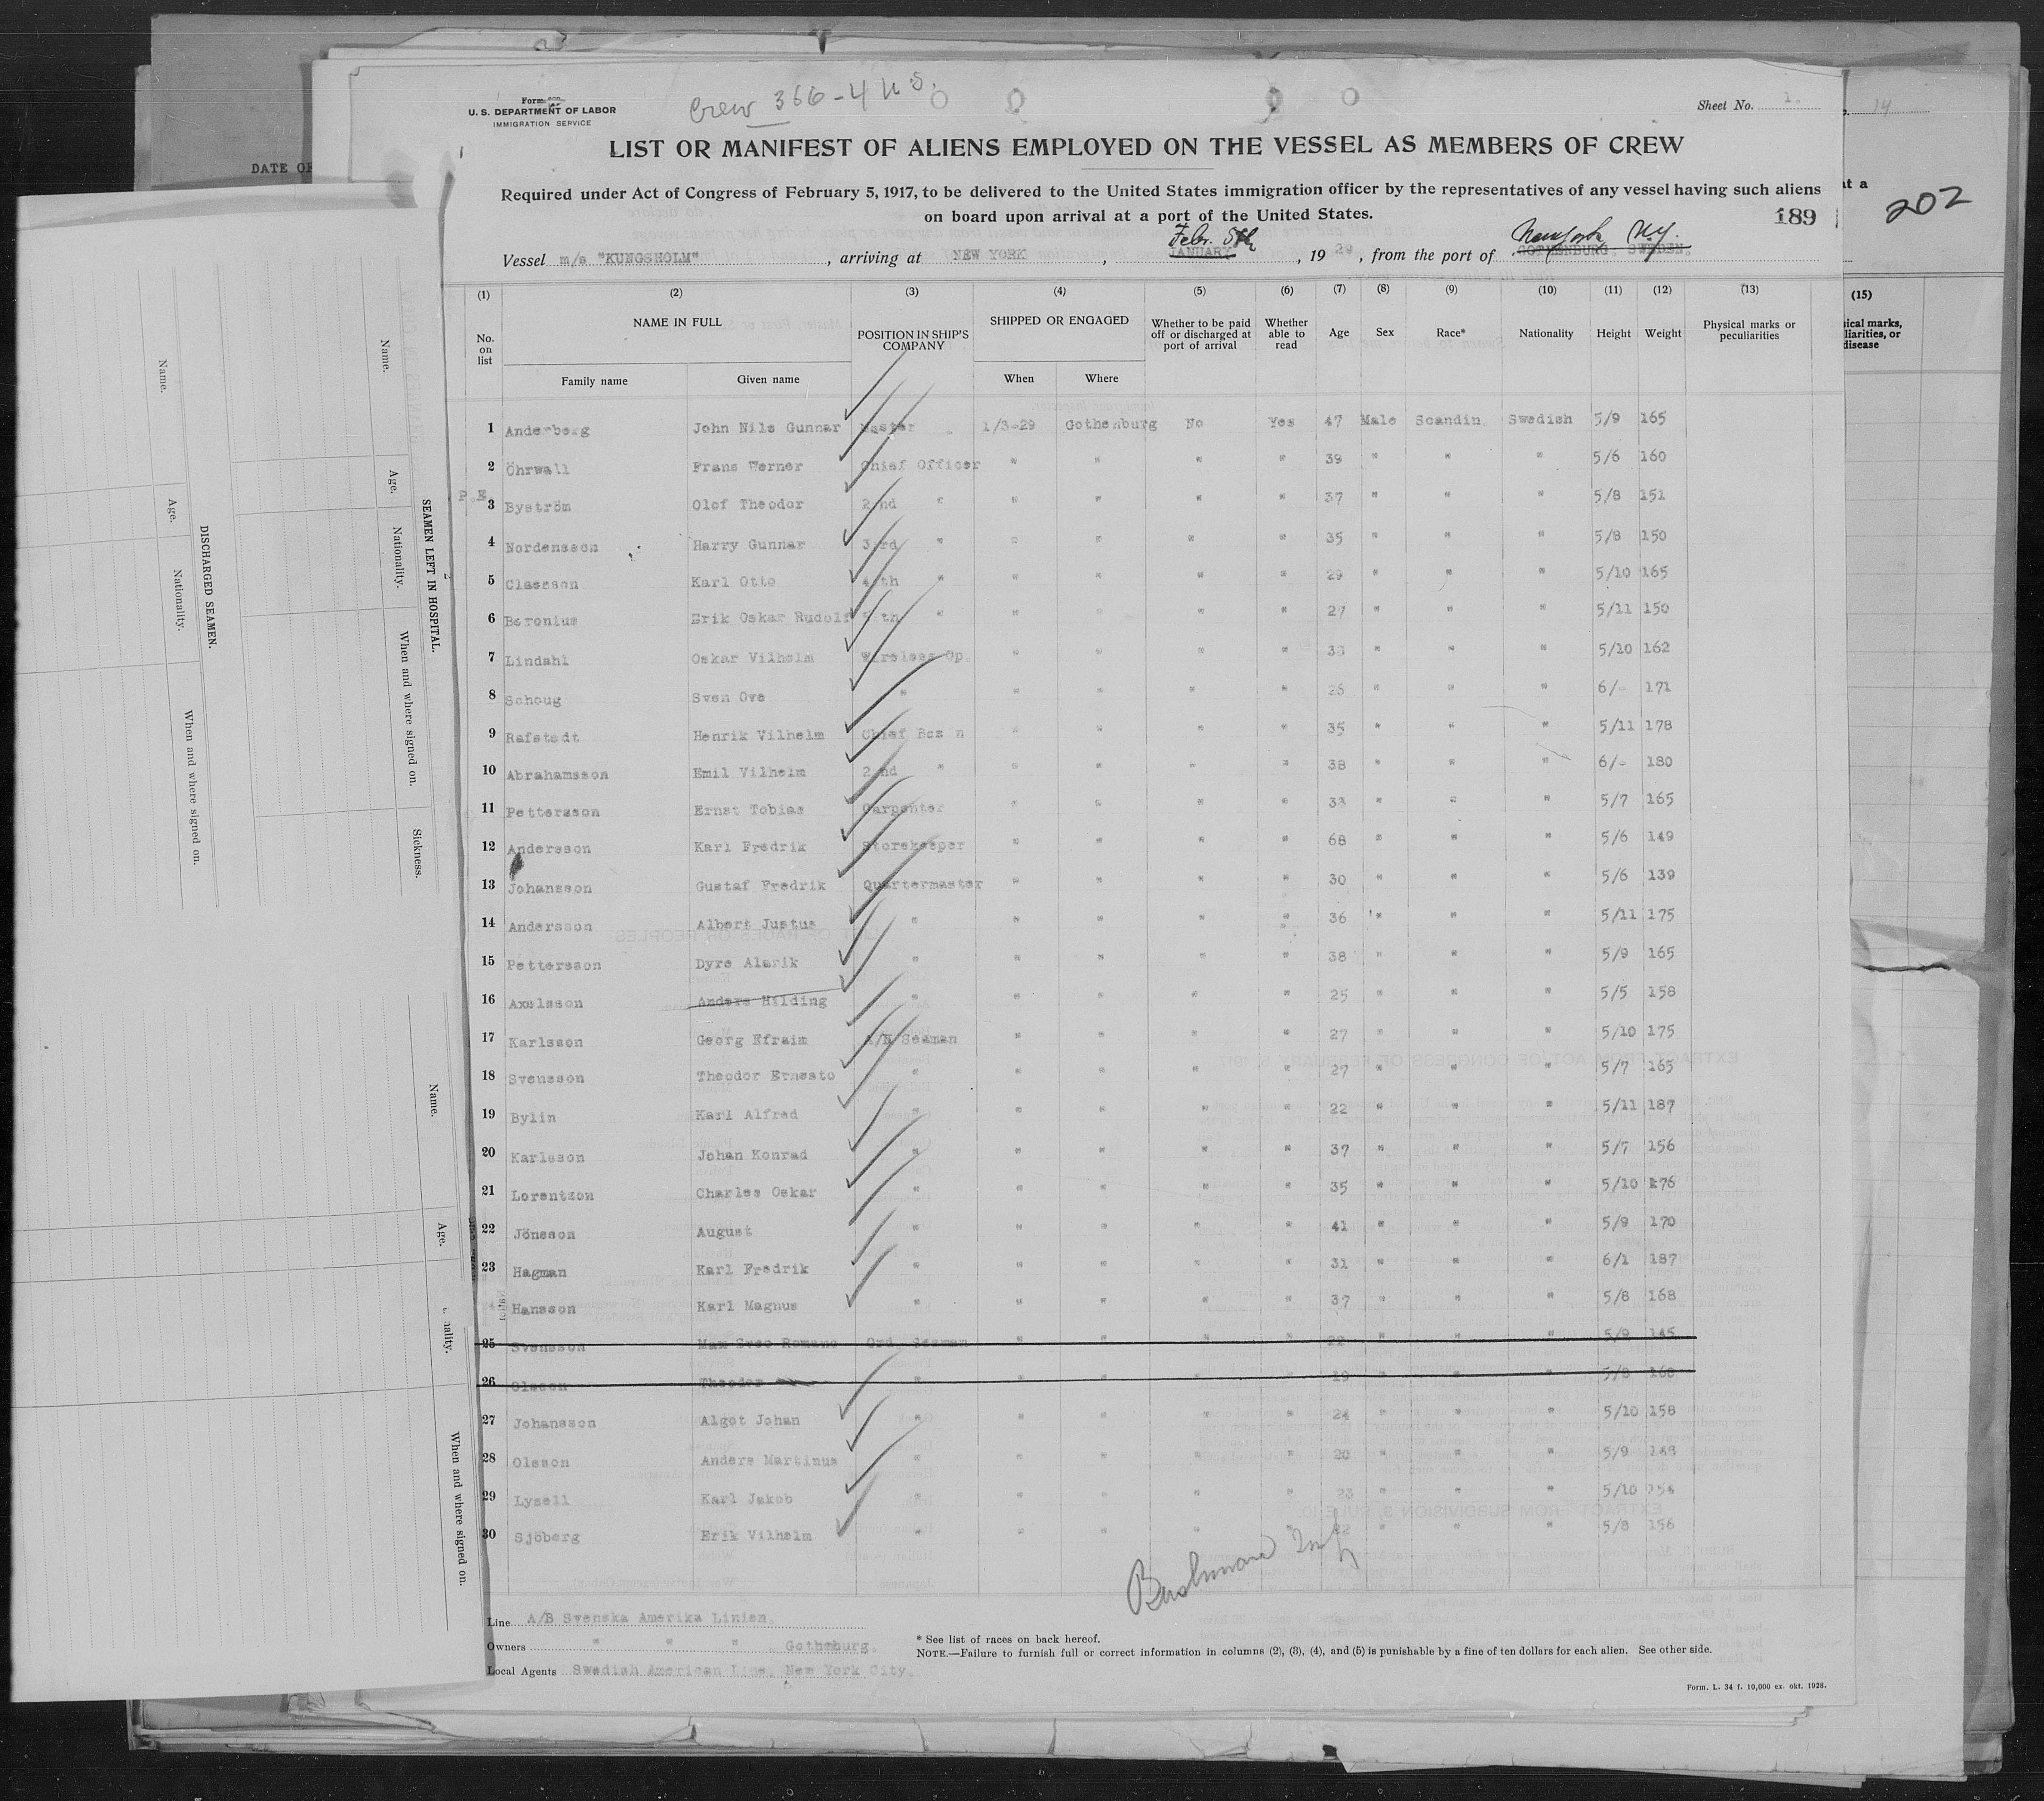 Crew 366 - 4 U.S.
Form
U. S. DEPARTMENT OF LABOR
IMMIGRATION SERVICE
Sheet No. 1.
14
DATE OF
LIST OR MANIFEST OF ALIENS EMPLOYED ON THE VESSEL AS MEMBERS OF CREW
Required under Act of Congress of February 5, 1917, to be delivered to the United States immigration officer by the representatives of any vessel having such aliens
on board upon arrival at a port of the United States.
189
at a
202
Febr. 5th New York N.Y.
Vessel m/s "KUNGSHOLM", arriving at NEW YORK, JANUARY, 19 29, from the port of GOTHENBURG, SWEDEN.
(1) (2) (3) (4) (5) (6) (7) (8) (9) (10) (11) (12) (13) (15)
No. on list NAME IN FULL POSITION IN SHIP'S COMPANY SHIPPED OR ENGAGED Whether to be paid off or discharged at port of arrival Whether able to read Age Sex Race* Nationality Height Weight Physical marks or peculiarities
Family name Given name When Where
1 Anderberg John Nils Gunnar Master 1/3-29 Gothenburg No Yes 47 Male Scandin. Swedish 5/9 165
2 Öhrwall Frans Werner Chief Officer " " " " 39 " " " 5/6 160
P.E. 3 Byström Olof Theodor 2nd " " " " " 37 " " " 5/8 151
4 Nordensson Harry Gunnar 3rd " " " " " 35 " " " 5/8 150
5 Claesson Karl Otto 4th " " " " " 29 " " " 5/10 165
6 Beronius Erik Oskar Rudolf 5th " " " " " 27 " " " 5/11 150
7 Lindahl Oskar Vilhelm Wireless Op. " " " " 33 " " " 5/10 162
8 Schoug Sven Ove " " " " " 26 " " " 6/- 171
9 Rafstedt Henrik Vilhelm Chief Bos n " " " " 35 " " " 5/11 178
10 Abrahamsson Emil Vilhelm 2nd " " " " " 38 " " " 6/- 180
11 Pettersson Ernst Tobias Carpenter " " " " 33 " " " 5/7 165
12 Andersson Karl Fredrik Storekeeper " " " " 68 " " " 5/6 149
13 Johansson Gustaf Fredrik Quartermaster " " " " 30 " " " 5/6 139
14 Andersson Albert Justus " " " " " 36 " " " 5/11 175
15 Pettersson Dyre Alarik " " " " " 38 " " " 5/9 165
16 Axelsson Anders Hilding " " " " " 25 " " " 5/5 158
17 Karlsson Georg Efraim A/B Seaman " " " " 27 " " " 5/10 175
18 Svensson Theodor Ernesto " " " " " 27 " " " 5/7 165
19 Bylin Karl Alfred " " " " " 22 " " " 5/11 187
20 Karlsson Johan Konrad " " " " " 37 " " " 5/7 156
21 Lorentzon Charles Oskar " " " " " 35 " " " 5/10 176
22 Jönsson August " " " " " 41 " " " 5/9 170
23 Hagman Karl Fredrik " " " " " 31 " " " 6/1 187
Hansson Karl Magnus " " " " " 37 " " " 5/8 168
25 Svensson Max Romano Ord. Seaman " " " " 22 " " " 5/9 145
26 Olsson Theodor " " " " " 19 " " " 5/8 160
27 Johansson Algot Johan " " " " " 24 " " " 5/10 158
28 Olsson Anders Martinus " " " " " 20 " " " 5/9
29 Lysell Karl Jakob " " " " " 23 " " " 5/10
30 Sjöberg Erik Vilhelm " " " " " 22 " " " 5/8 156
Line A/B Svenska Amerika Linien.
Owners " " " Gothenburg.
Local Agents Swedish American Line, New York City.
* See list of races on back hereof.
NOTE.—Failure to furnish full or correct information in columns (2), (3), (4), and (5) is punishable by a fine of ten dollars for each alien. See other side.
Form. L. 34 f. 10,000 ex. okt. 1928.
SEAMEN LEFT IN HOSPITAL.
Name. Age. Nationality. When and where signed on. Sickness.
DISCHARGED SEAMEN.
Name. Age. Nationality. When and where signed on.
Name. Age. ality. When and where signed on.